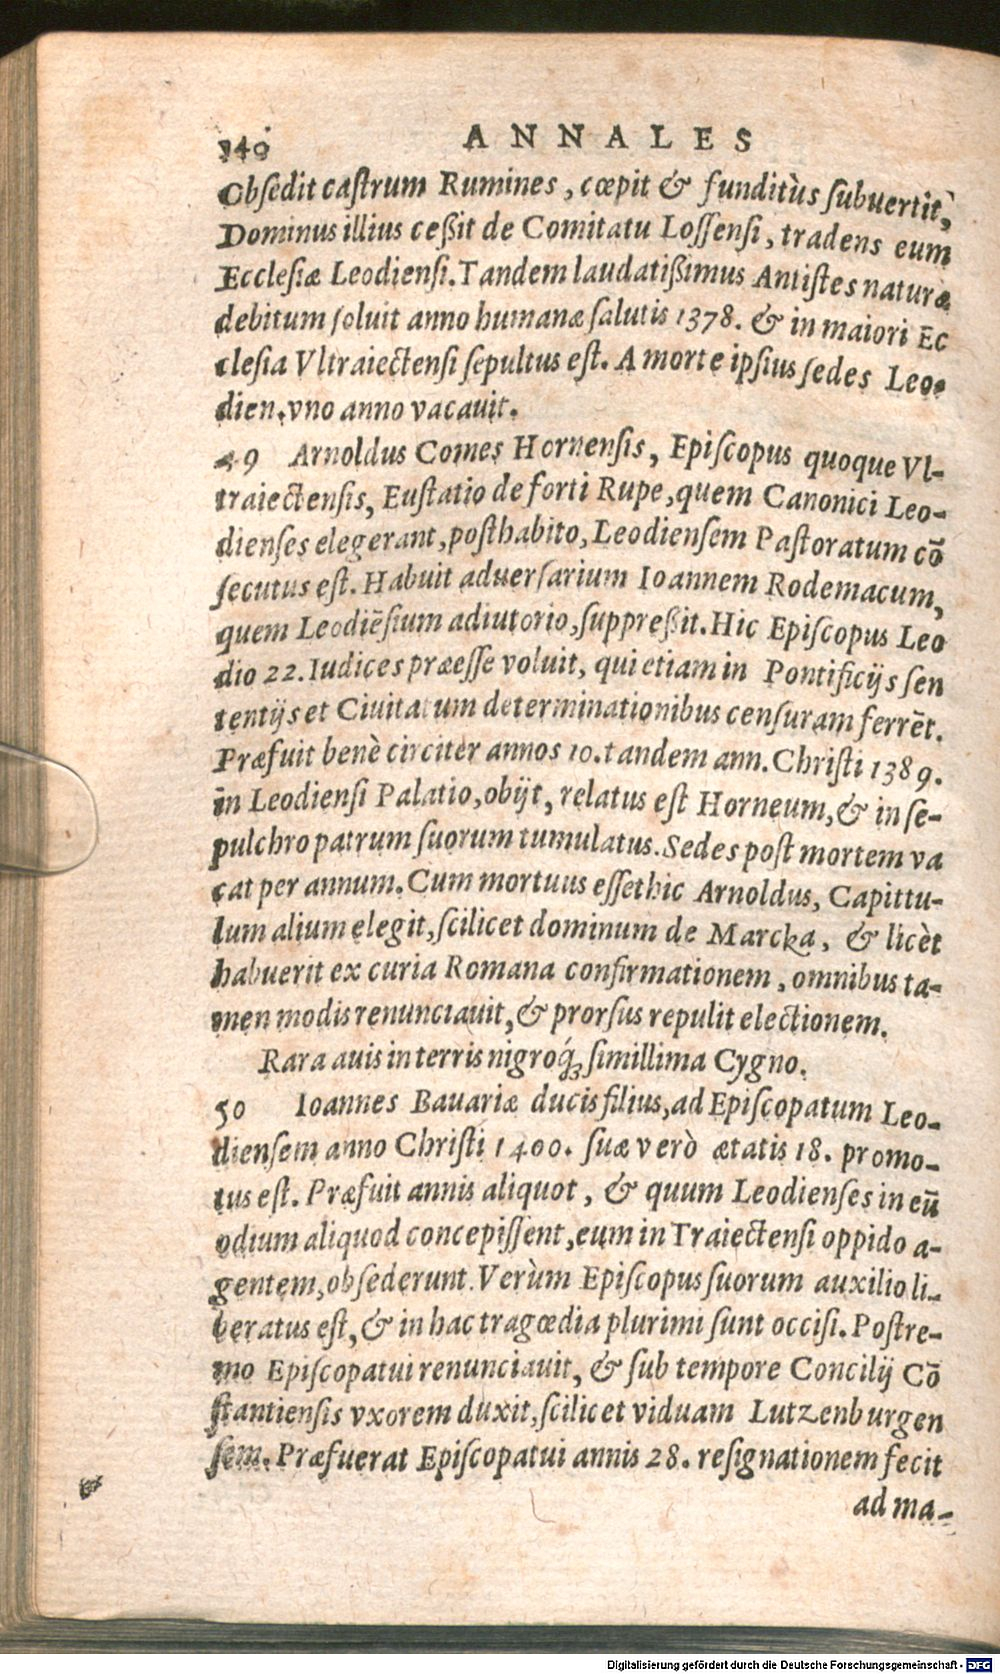 140 ANNALES
Obsedit castrum Rumines, cœpit & funditùs subuertit,
Dominus illius ceßit de Comitatu Lossensi, tradens eum
Ecclesiæ Leodiensi. Tandem laudatißimus Antistes naturæ
debitum soluit anno humanæ salutis 1378. & in maiori Ec
clesia Vltraiectensi sepultus est. A morte ipsius sedes Leo-
dien. vno anno vacauit.
49 Arnoldus Comes Hornensis, Episcopus quoque Vl-
traiectensis, Eustatio de forti Rupe, quem Canonici Leo-
dienses elegerant, posthabito, Leodiensem Pastoratum cō
secutus est. Habuit aduersarium Ioannem Rodemacum,
quem Leodiēsium adiutorio, suppreßit. Hic Episcopus Leo
dio 22. Iudices præesse voluit, qui etiam in Pontificijs sen
tentijs et Ciuitatum determinationibus censuram ferrēt.
Præfuit benè circiter annos 10. tandem ann. Christi 1389.
in Leodiensi Palatio, obijt, relatus est Horneum, & in se-
pulchro patrum suorum tumulatus. Sedes post mortem va
cat per annum. Cum mortuus esset hic Arnoldus, Capittu-
lum alium elegit, scilicet dominum de Marcka, & licèt
habuerit ex curia Romana confirmationem, omnibus ta-
men modis renunciauit, & prorsus repulit electionem.
Rara auis in terris nigroq́ꝫ simillima Cygno.
50 Ioannes Bauariæ ducis filius, ad Episcopatum Leo-
diensem anno Christi 1400. suæ verò ætatis 18. promo-
tus est. Præfuit annis aliquot, & quum Leodienses in eū
odium aliquod concepissent, eum in Traiectensi oppido a-
gentem, obsederunt. Verùm Episcopus suorum auxilio li-
beratus est, & in hac tragœdia plurimi sunt occisi. Postre-
mo Episcopatui renunciauit, & sub tempore Concilij Cō
stantiensis vxorem duxit, scilicet viduam Lutzenburgen
sem. Præfuerat Episcopatui annis 28. resignationem fecit
ad ma-
Digitalisierung gefördert durch die Deutsche Forschungsgemeinschaft - DFG